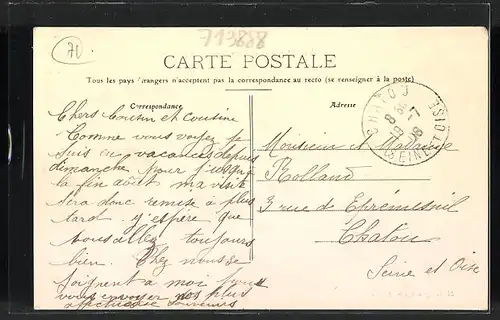 70
713888
CARTE POSTALE
Tous les pays étrangers n'acceptent pas la correspondance au recto (se renseigner à la poste)
Correspondance
Adresse
CHATOU
8 30
19-7
08
SEINE ET OISE
Chers Cousin et Cousine
Comme vous voyez je
suis en vacances depuis
dimanche pour jusqu'à
la fin août ma visite
sera donc remise à plus
tard. j'espère que
vous allez toujours
bien. Chez nous se
joignent à moi pour
vous envoyer nos plus
affectueux souvenirs
Monsieur et Madame
Rolland
3 rue de Eprémesnil
Chatou
Seine et Oise